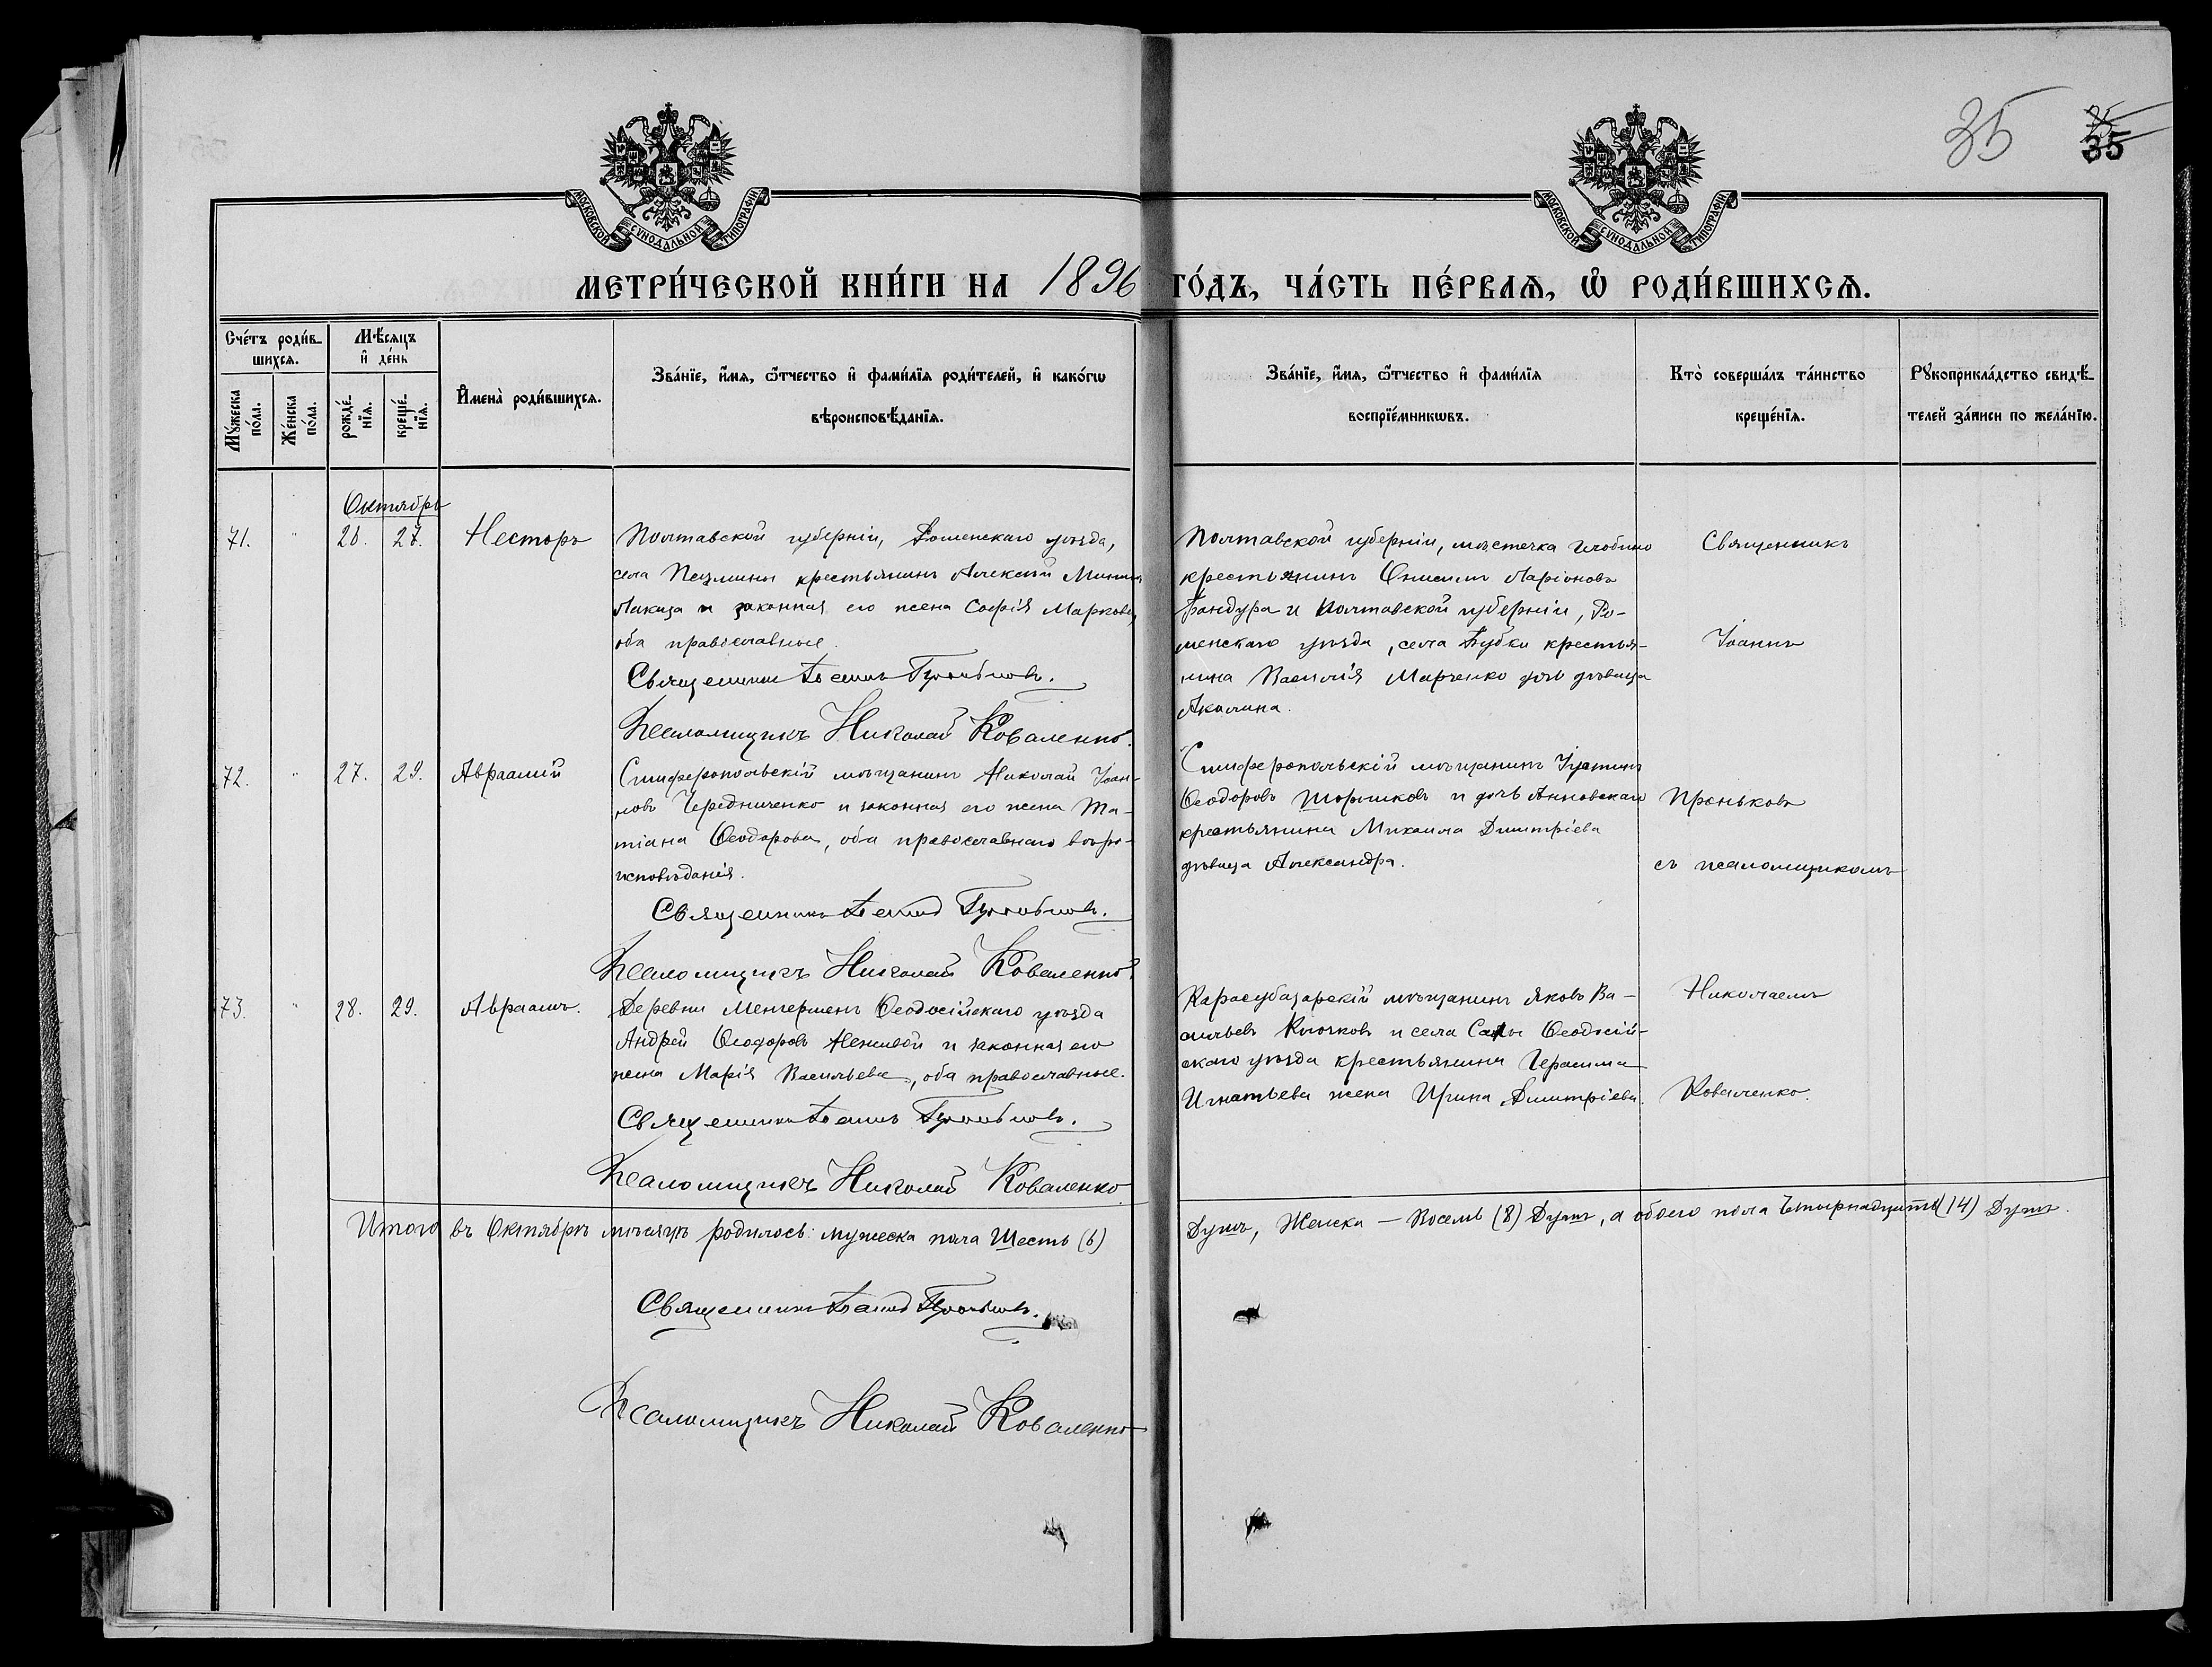 35 35
МОСКОВСКОЙ СѴНОДАЛЬНОЙ ТИПОГРАФІИ
МОСКОВСКОЙ СѴНОДАЛЬНОЙ ТИПОГРАФІИ
МЕТРИ́ЧЕСКОЙ КНИ́ГИ НА 1896 ГО́ДЪ, ЧА́СТЬ ПЕ́РВАѦ, Ѡ РОДИ́ВШИХСѦ.
Сче́тъ роди́в-
шихсѧ.
Мꙋ́жеска по́ла.
Же́нска по́ла.
Мѣ́сѧцъ и҆ де́нь
рожде́-
нїѧ.
креще́-
нїѧ.
И҆мена̀ роди́вшихсѧ.
Зва́нїе, и҆́мѧ, ѻ҆́тчество и҆ фами́лїѧ роди́телей, и҆ како́гѡ
вѣроисповѣ́данїѧ.
Зва́нїе, и҆́мѧ, ѻ҆́тчество и҆ фами́лїѧ
воспрїе́мникѡвъ.
Кто̀ соверша́лъ та́инство
креще́нїѧ.
Рꙋкоприкла́дство свидѣ́-
телей за́писи по жела́нїю.
Октябрь
71. " 26. 27. Несторъ
Полтавской губерніи, Роменскаго уѣзда,
села крестьянинъ Алексѣй
и законная его жена Софія Маркова,
оба православные.
Священникъ Іоаннъ
Псаломщикъ Николай Коваленко.
Полтавской губерніи, мѣстечка
крестьянинъ Онисимъ Ларіоновъ
Бандура и Полтавской губерніи, Ро-
менскаго уѣзда, села Бубки крестья-
нина Василія Марченко дочь дѣвица
Акилина.
Священникъ
Іоаннъ
72. " 27. 29. Авраамій
Симферопольскій мѣщанинъ Николай Іоан-
новъ Чередниченко и законная его жена Та-
тіана Ѳеодорова, оба православнаго вѣро-
исповѣданія.
Священникъ Іоаннъ
Псаломщикъ Николай Коваленко.
Симферопольскій мѣщанинъ Іустинъ
Ѳеодоровъ Шорниковъ и дочь Анновскаго
крестьянина Михаила Димитріева
дѣвица Александра.
съ псаломщикомъ
73. " 28. 29. Авраамъ.
Деревни Ѳеодосійскаго уѣзда
Андрей Ѳеодоровъ Неживой и законная его
жена Марія Васильева, оба православные.
Священникъ Іоаннъ
Псаломщикъ Николай Коваленко
Карасубазарскій мѣщанинъ Яковъ Ва-
сильевъ Клочковъ и села Салы Ѳеодосій-
скаго уѣзда крестьянина Герасима
Игнатьева жена Ирина Димитріева.
Николаемъ
Коваленко.
Итого въ Октябрѣ мѣсяцѣ родилось: мужеска пола Шесть (6)
Душъ, Женска — Восемь (8) Душъ, а обоего пола Четырнадцать (14) Душъ.
Священникъ Іоаннъ
Псаломщикъ Николай Коваленко